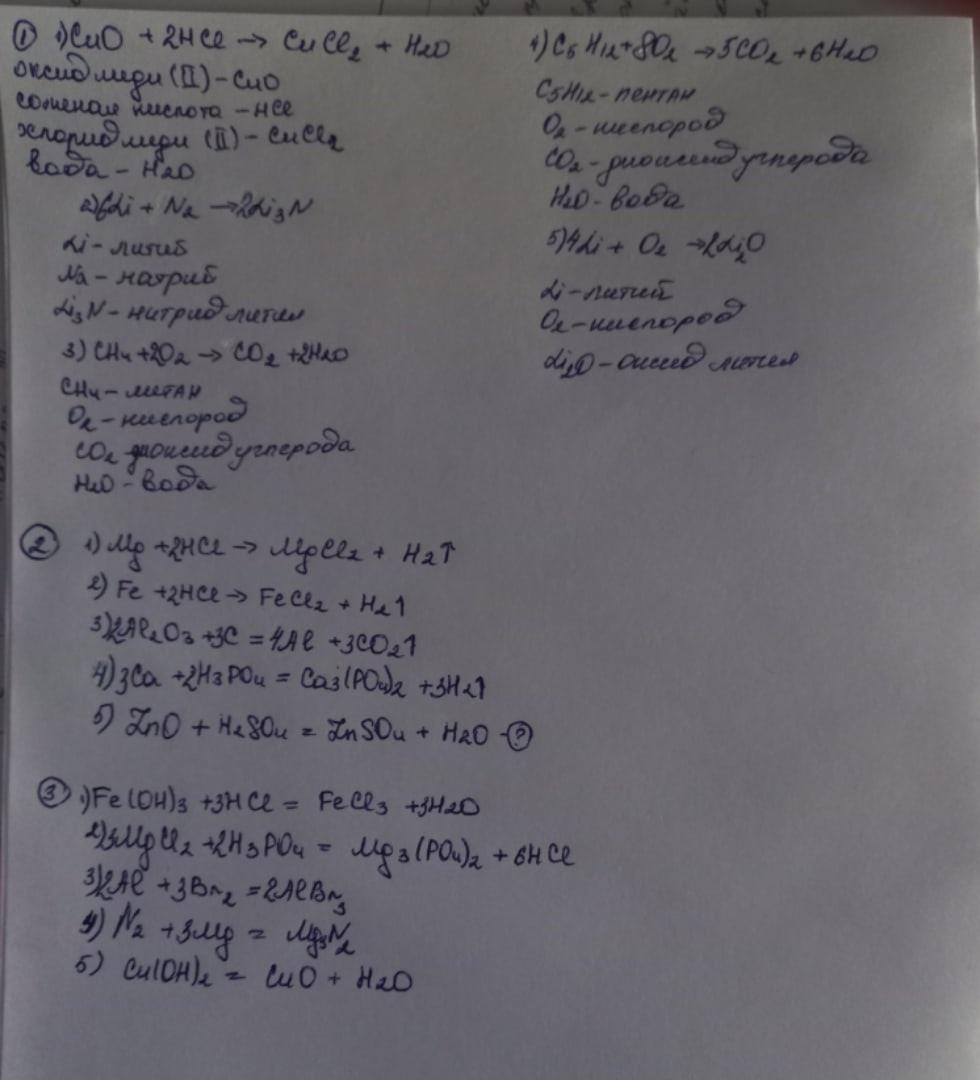 ① 1) CuO + 2HCl → CuCl₂ + H₂O
оксид меди (II) - CuO
соляная кислота - HCl
хлорид меди (II) - CuCl₂
вода - H₂O
2) 6Li + N₂ → 2Li₃N
Li - литий
Na - натрий
Li₃N - нитрид лития
3) CH₄ + 2O₂ → CO₂ + 2H₂O
CH₄ - метан
O₂ - кислород
CO₂ - диоксид углерода
H₂O - вода
4) C₅H₁₂ + 8O₂ → 5CO₂ + 6H₂O
C₅H₁₂ - пентан
O₂ - кислород
CO₂ - диоксид углерода
H₂O - вода
5) 4Li + O₂ → 2Li₂O
Li - литий
O₂ - кислород
Li₂O - оксид лития
② 1) Mg + 2HCl → MgCl₂ + H₂↑
2) Fe + 2HCl → FeCl₂ + H₂↑
3) 2Al₂O₃ + 3C = 4Al + 3CO₂↑
4) 3Ca + 2H₃PO₄ = Ca₃(PO₄)₂ + 3H₂↑
5) ZnO + H₂SO₄ = ZnSO₄ + H₂O - ?
③ 1) Fe(OH)₃ + 3HCl = FeCl₃ + 3H₂O
2) 3MgCl₂ + 2H₃PO₄ = Mg₃(PO₄)₂ + 6HCl
3) 2Al + 3Br₂ = 2AlBr₃
4) N₂ + 3Mg = Mg₃N₂
5) Cu(OH)₂ = CuO + H₂O